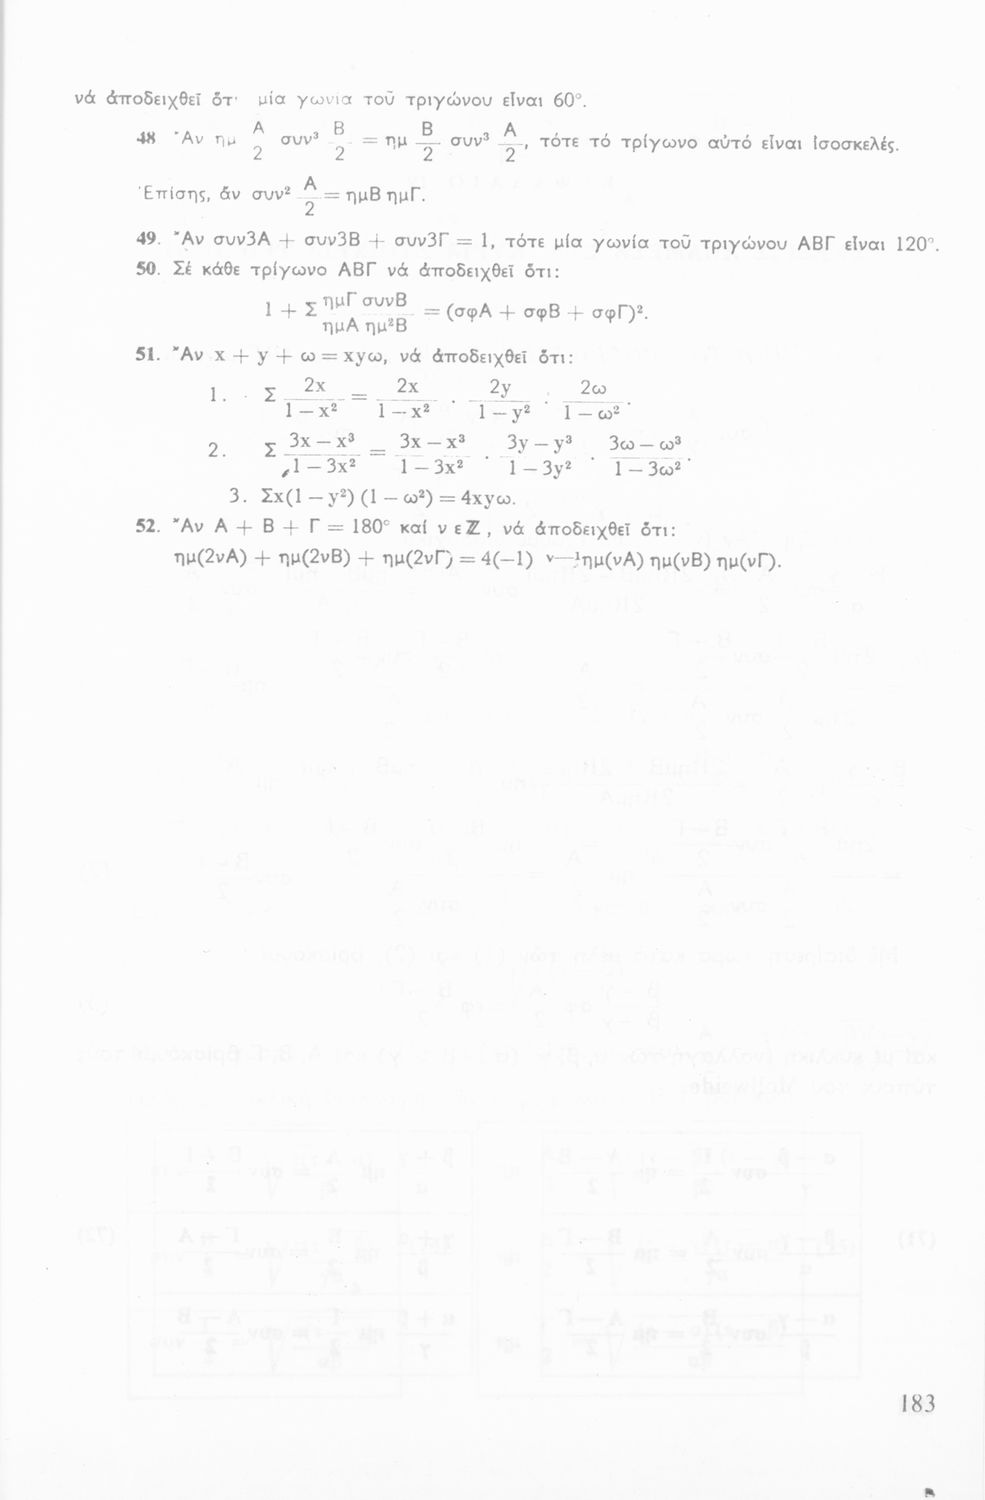 νά ἀποδειχθεῖ ὅτι μία γωνία τοῦ τριγώνου εἶναι 60°.
48 Ἄν ημ A/2 συν³ B/2 = ημ B/2 συν³ A/2, τότε τό τρίγωνο αὐτό εἶναι ἰσοσκελές.
Ἐπίσης, ἄν συν² A/2 = ημB ημΓ.
49. Ἄν συν3A + συν3B + συν3Γ = 1, τότε μία γωνία τοῦ τριγώνου ΑΒΓ εἶναι 120°.
50. Σέ κάθε τρίγωνο ΑΒΓ νά ἀποδειχθεῖ ὅτι:
1 + Σ ημΓ συνB / ημA ημ²B = (σφA + σφB + σφΓ)².
51. Ἄν x + y + ω = xyω, νά ἀποδειχθεῖ ὅτι:
1. Σ 2x/1 — x² = 2x/1 — x² · 2y/1 — y² · 2ω/1 — ω² .
2. Σ 3x — x³/1 — 3x² = 3x — x³/1 — 3x² · 3y — y³/1 — 3y² · 3ω — ω³/1 — 3ω² .
3. Σx(1 — y²) (1 — ω²) = 4xyω.
52. Ἄν A + B + Γ = 180° καί ν ε ℤ, νά ἀποδειχθεῖ ὅτι:
ημ(2νA) + ημ(2νB) + ημ(2νΓ) = 4(—1) ν—1ημ(νA) ημ(νB) ημ(νΓ).
183